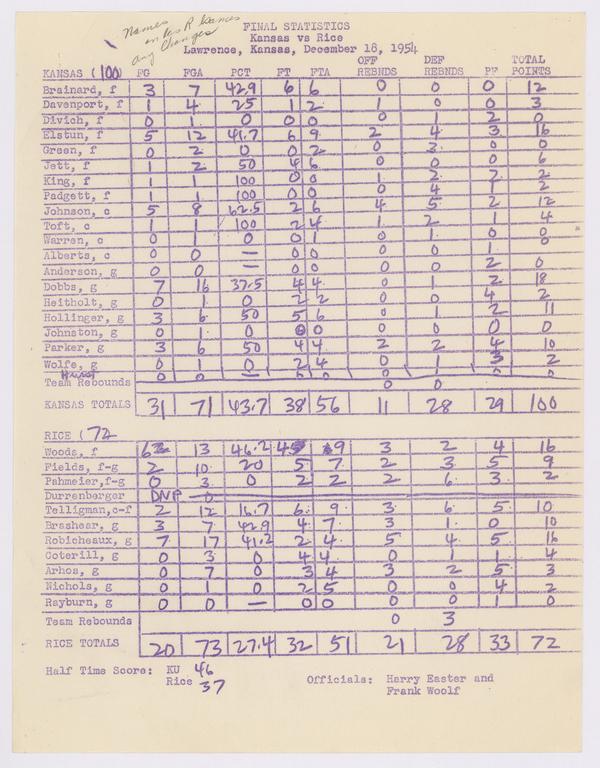 Names
on Box R Games
any Changes
FINAL STATISTICS
Kansas vs Rice
Lawrence, Kansas, December 18, 1954
OFF DEF TOTAL
KANSAS (100) FG FGA PCT FT FTA REBNDS REBNDS PF POINTS
Brainard, f 3 7 42.9 6 6 0 0 0 12
Davenport, f 1 4 25 1 2 1 0 0 3
Divich, f 0 1 0 0 0 0 1 2 0
Elstun, f 5 12 41.7 6 9 2 4 3 16
Green, f 0 2 0 0 2 0 3 0 0
Jett, f 1 2 50 4 6 0 0 0 6
King, f 1 1 100 0 0 1 2 2 2
Padgett, f 1 1 100 0 0 0 4 1 2
Johnson, c 5 8 62.5 2 6 4 5 2 12
Toft, c 1 1 100 2 4 1 2 1 4
Warren, c 0 1 0 0 1 0 1 0 0
Alberts, c 0 0 — 0 0 0 0 1 0
Anderson, g 0 0 — 0 0 0 0 2 0
Dobbs, g 7 16 37.5 4 4 0 1 2 18
Heitholt, g 0 1 0 2 2 0 0 4 2
Hollinger, g 3 6 50 5 6 0 1 2 11
Johnston, g 0 1 0 0 0 0 0 0 0
Parker, g 3 6 50 4 4 2 2 4 10
Wolfe, g 0 1 0 2 4 0 1 3 2
0 0 — 0 0 0 0
Team Rebounds 0 0
KANSAS TOTALS 31 71 43.7 38 56 11 28 29 100
RICE (72
Woods, f 6 13 46.2 4 9 3 2 4 16
Fields, f-g 2 10 20 5 7 2 3 5 9
Pahmeier, f-g 0 3 0 2 2 2 6 3 2
Durrenberger DNP — 0
Telligman, c-f 2 12 16.7 6 9 3 6 5 10
Brashear, g 3 7 42.9 4 7 3 1 0 10
Robicheaux, g 7 17 41.2 2 4 5 4 5 16
Coterill, g 0 3 0 4 4 0 1 1 4
Arhos, g 0 7 0 3 4 3 2 5 3
Nichols, g 0 1 0 2 5 0 0 4 2
Rayburn, g 0 0 — 0 0 0 0 1 0
Team Rebounds 0 3
RICE TOTALS 20 73 27.4 32 51 21 28 33 72
Half Time Score: KU 46
Rice 37
Officials: Harry Easter and
Frank Woolf